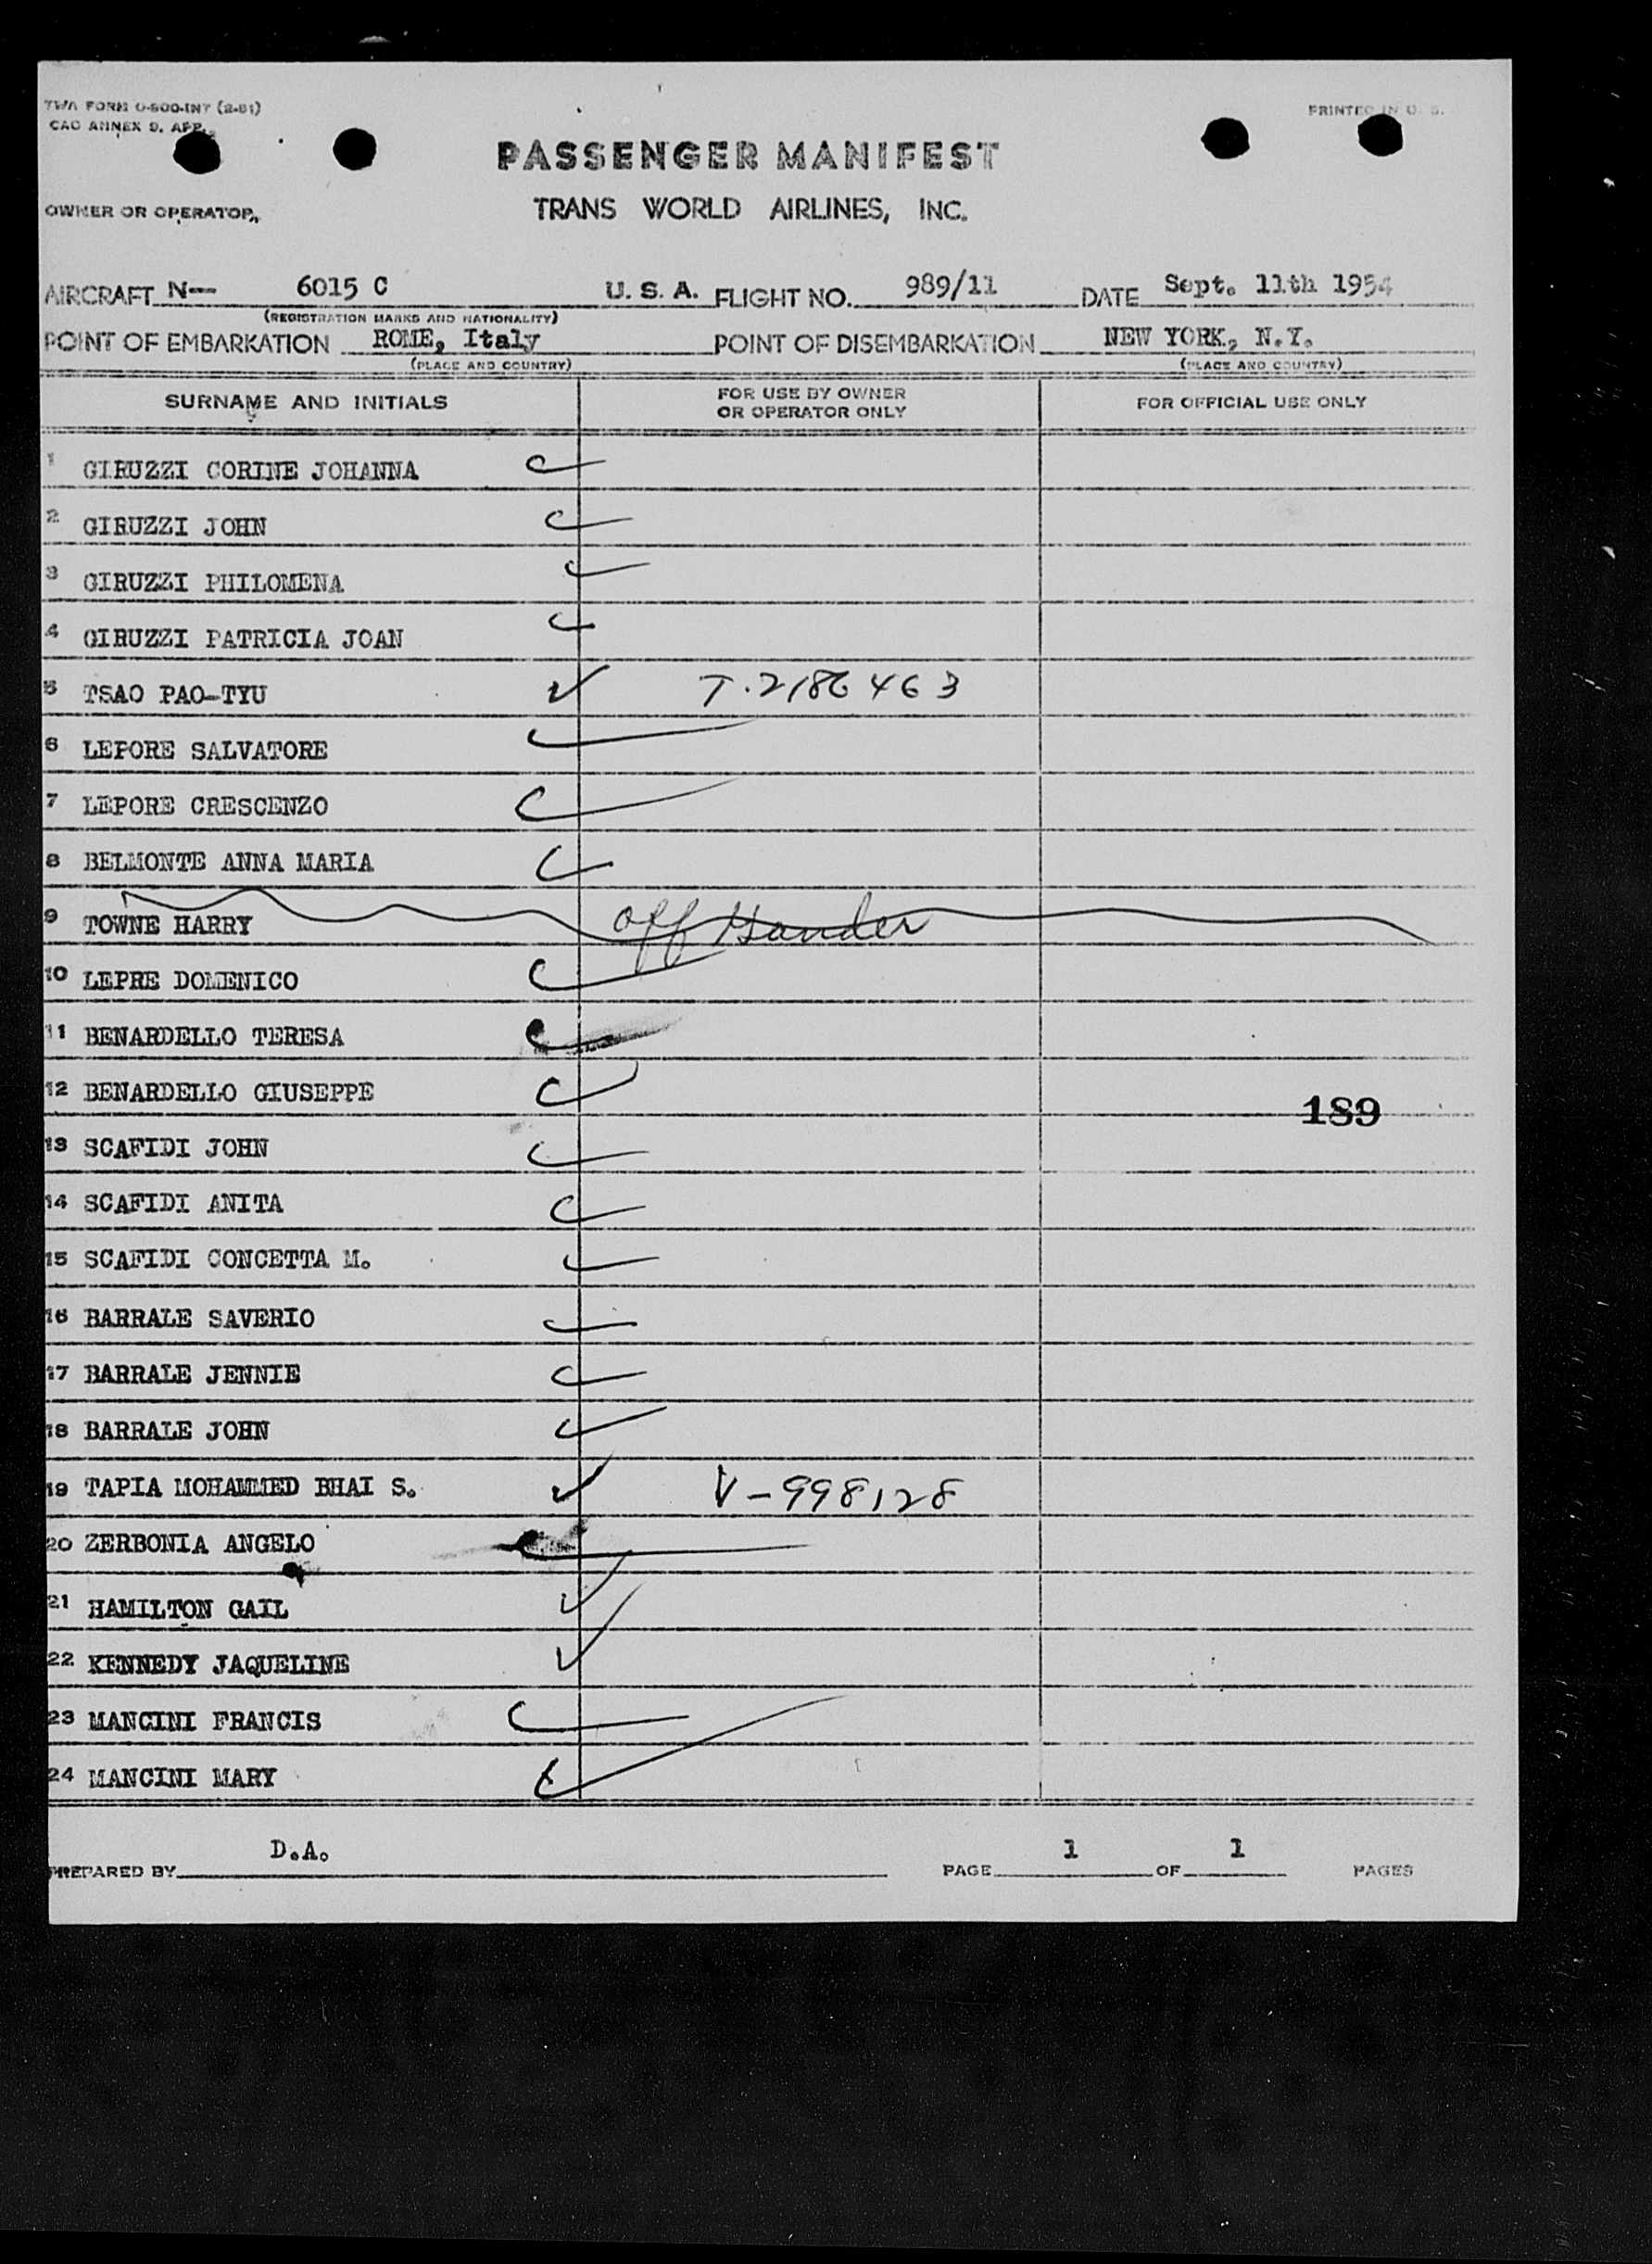 TWA FORM O-600-INT (2-51)
CAO ANNEX 9, APP.
PRINTED IN U. S.
PASSENGER MANIFEST
OWNER OR OPERATOR
TRANS WORLD AIRLINES, INC.
AIRCRAFT N-- 6015 C U. S. A. FLIGHT NO. 989/11 DATE Sept. 11th 1954
(REGISTRATION MARKS AND NATIONALITY)
POINT OF EMBARKATION ROME, Italy POINT OF DISEMBARKATION NEW YORK, N.Y.
(PLACE AND COUNTRY) (PLACE AND COUNTRY)
SURNAME AND INITIALS FOR USE BY OWNER OR OPERATOR ONLY FOR OFFICIAL USE ONLY
1 GIRUZZI CORINE JOHANNA
2 GIRUZZI JOHN
3 GIRUZZI PHILOMENA
4 GIRUZZI PATRICIA JOAN
5 TSAO PAO-TYU T.2186463
6 LEPORE SALVATORE
7 LEPORE CRESCENZO
8 BELMONTE ANNA MARIA
9 TOWNE HARRY off Gander
10 LEPRE DOMENICO
11 BENARDELLO TERESA
12 BENARDELLO GIUSEPPE
189
13 SCAFIDI JOHN
14 SCAFIDI ANITA
15 SCAFIDI CONCETTA M.
16 BARRALE SAVERIO
17 BARRALE JENNIE
18 BARRALE JOHN
19 TAPIA MOHAMMED BHAI S. V-998128
20 ZERBONIA ANGELO
21 HAMILTON GAIL
22 KENNEDY JAQUELINE
23 MANCINI FRANCIS
24 MANCINI MARY
PREPARED BY D.A. PAGE 1 OF 1 PAGES